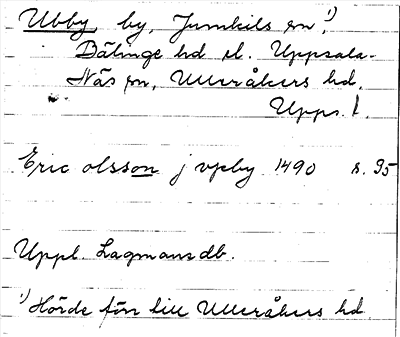 Ubby by, Jumkils sn.¹)
Bälinge hd el. Uppsala-
Näs sn, Ulleråkers hd.
Upps. l.
Eric olsson j vpby 1490 s. 95
Uppl. Lagmansdb.
¹) Hörde förr till Ulleråkers hd